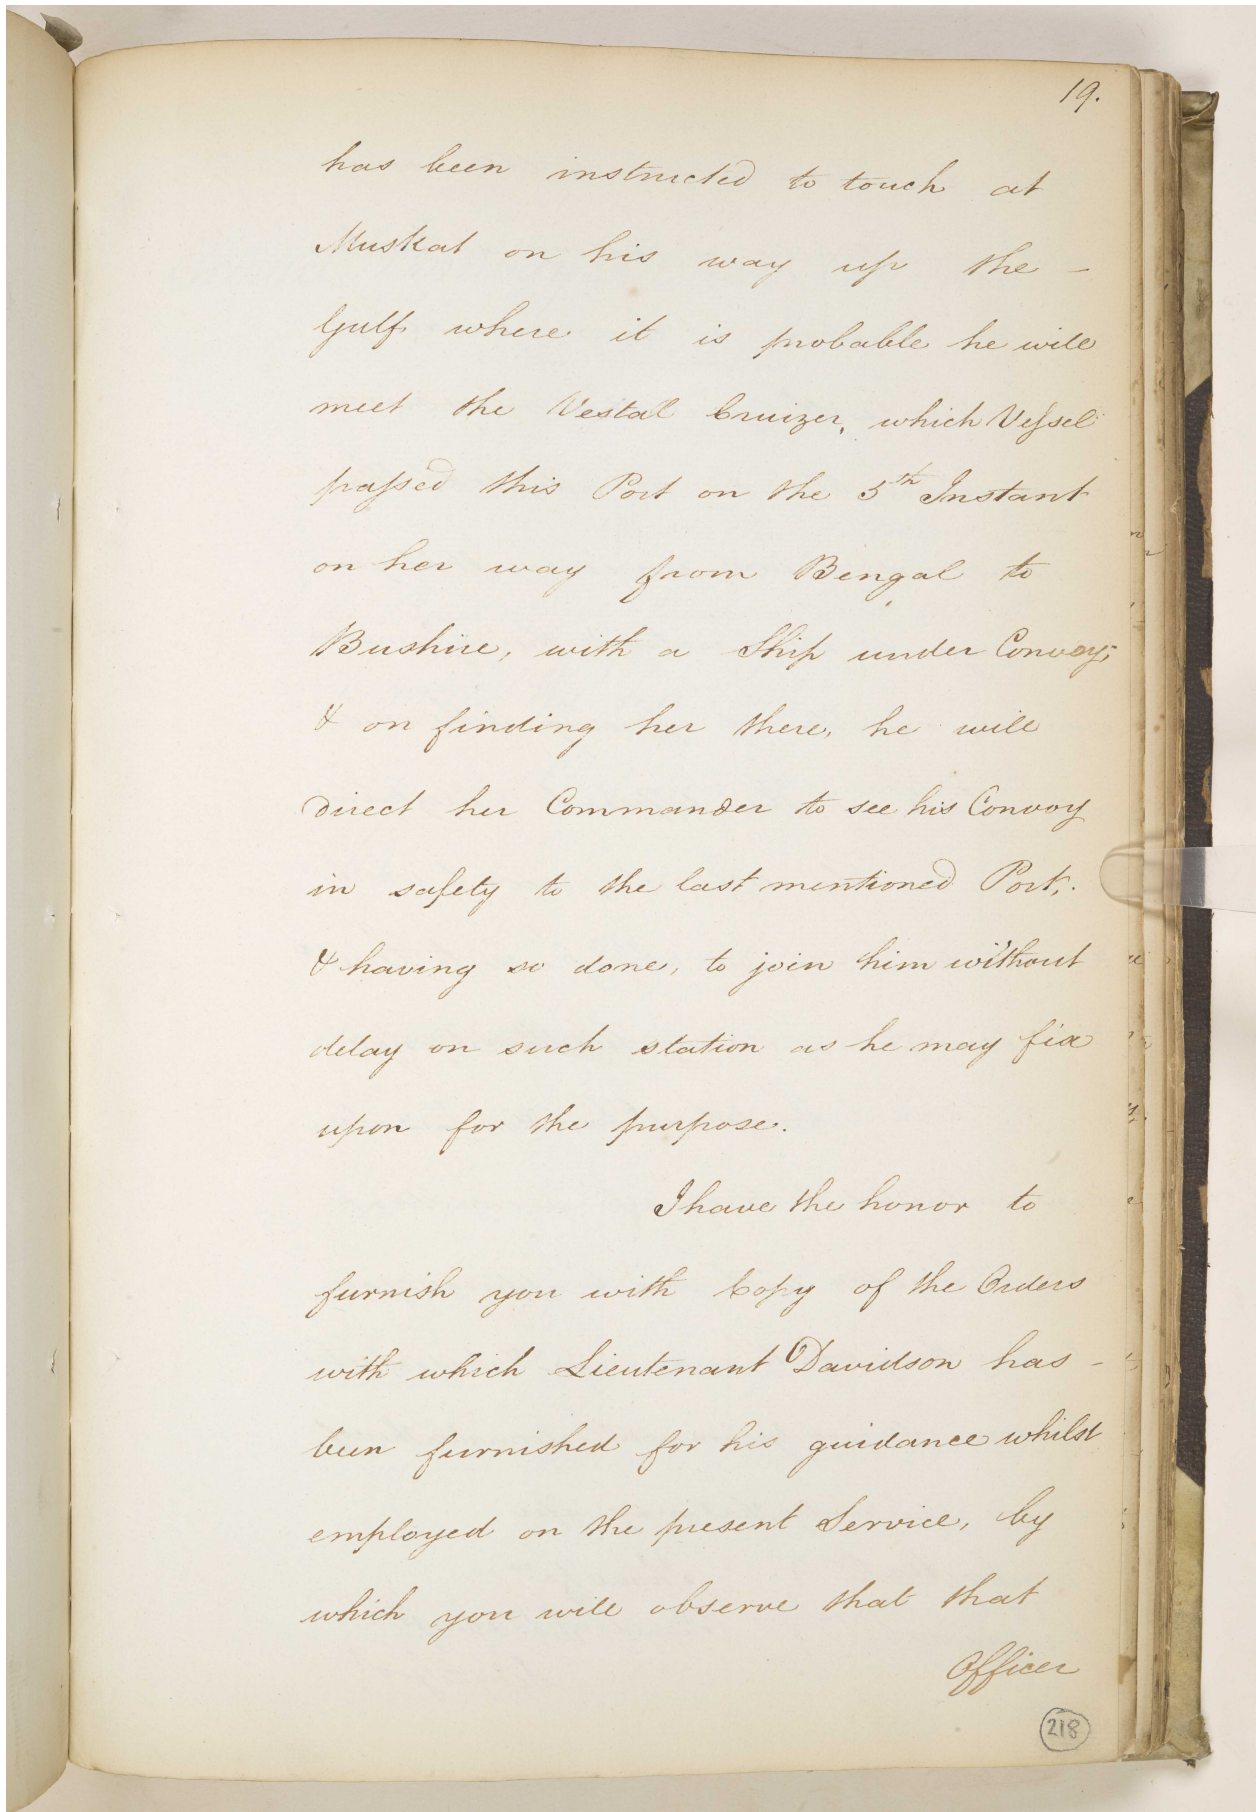 19.
has been instructed to touch at
Muskat on his way up the -
Gulf, where it is probable he will
meet the Vestal Cruizer, which Veſsel
paſsed this Port on the 5th Instant
on her way from Bengal to
Bushire, with a Ship under Convoy;
& on finding her there, he will
direct her Commander to see his Convoy
in safety to the last mentioned Port,
& having so done, to join him without
delay on such station as he may fix
upon for the purpose.
I have the honor to
furnish you with Copy of the Orders
with which Lieutenant Davidson has -
been furnished for his guidance whilst
employed on the present Service, by
which you will observe that that
Officer
218